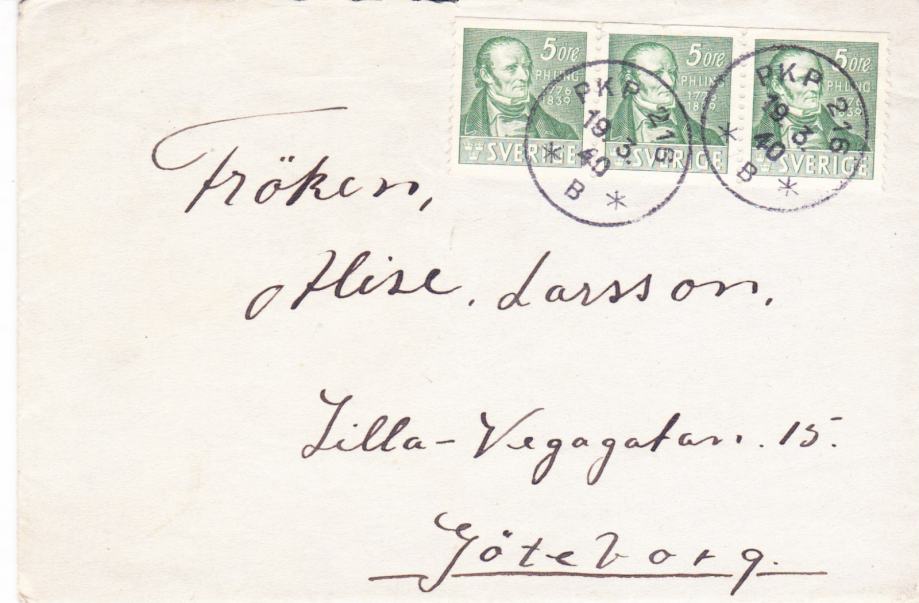 5 öre 5 öre 5 öre
PH LING PH LING PH LING
1776 1776
1839 1839 1839
SVERIGE SVERIGE SVERIGE
PKP 216
19. 3. 40
* B *
PKP 216
19. 3. 40
* B *
Fröken,
Alise. Larsson.
Lilla-Vegagatan. 15.
Göteborg.